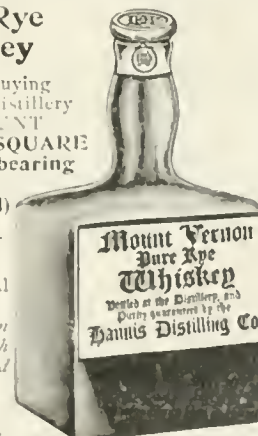 Rye
ey
uying
istillery
NT
SQUARE
bearing
Mount Vernon
Pure Rye
Whiskey
Bottled at the Distillery, and
Purity guaranteed by the
Hannis Distilling Co